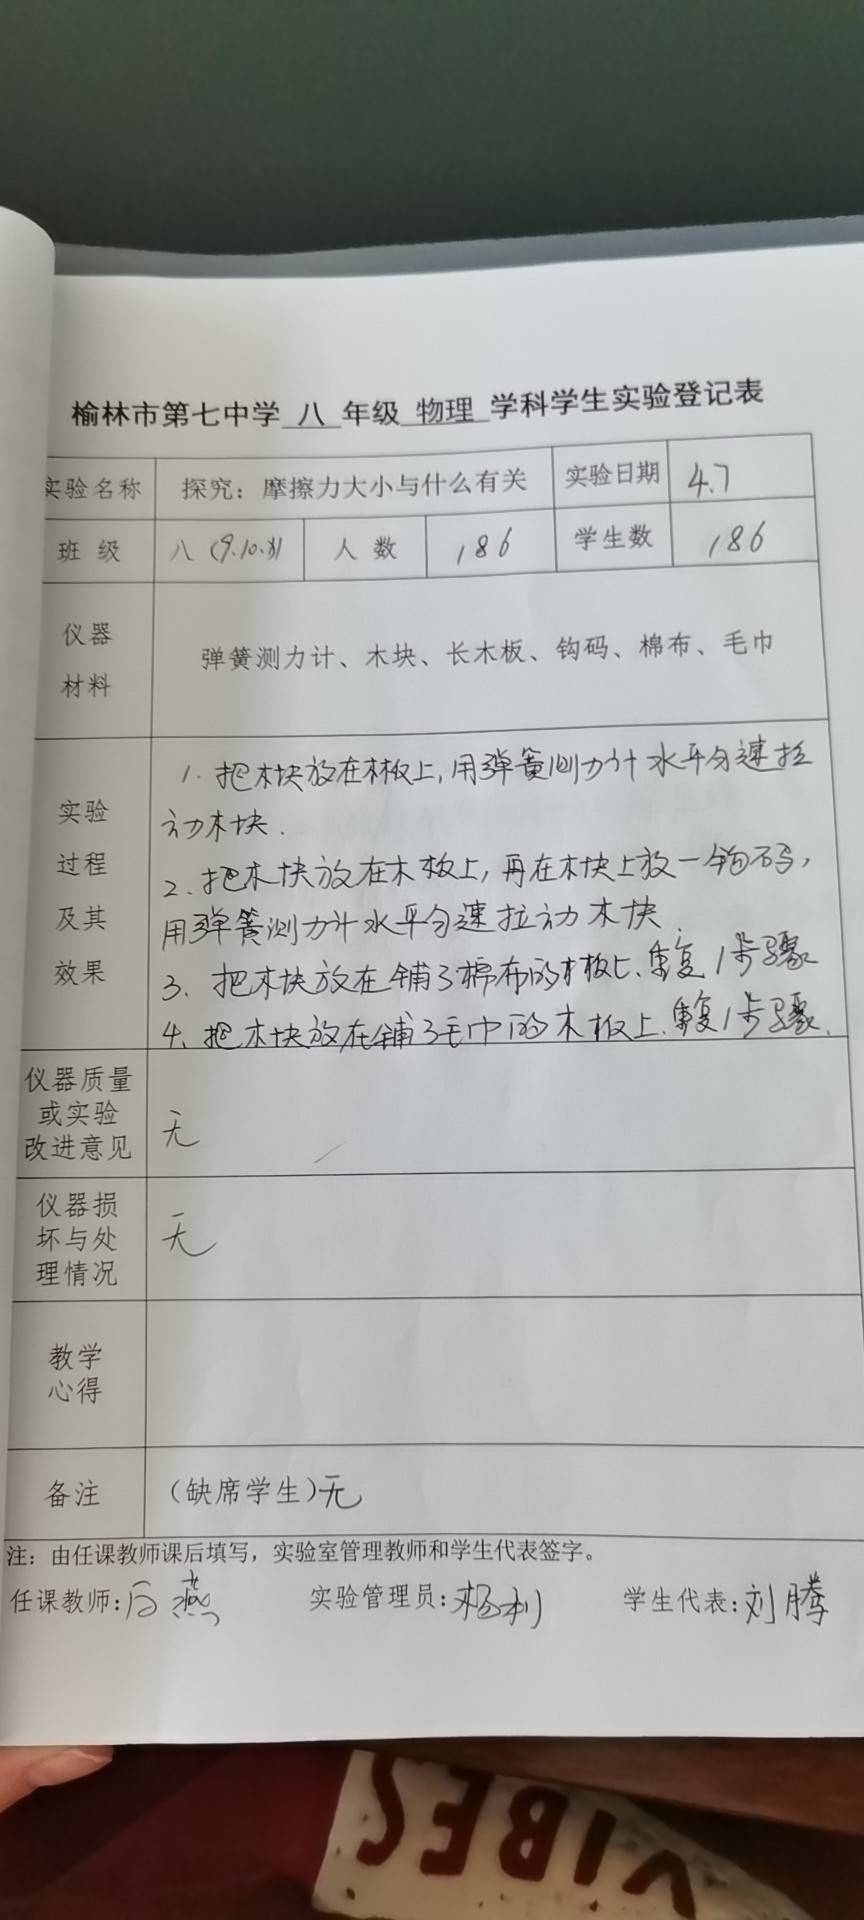 榆林市第七中学 八 年级 物理 学科学生实验登记表
实验名称 探究：摩擦力大小与什么有关 实验日期 4.7
班级 八(9.10.8) 人数 186 学生数 186
仪器
材料
弹簧测力计、木块、长木板、钩码、棉布、毛巾
实验
过程
及其
效果
1. 把木块放在木板上,用弹簧测力计水平匀速拉
动木块.
2. 把木块放在木板上,再在木块上放一钩码,
用弹簧测力计水平匀速拉动木块.
3. 把木块放在铺了棉布的木板上.重复1步骤
4. 把木块放在铺了毛巾的木板上.重复1步骤.
仪器质量
或实验
改进意见
无
仪器损
坏与处
理情况
无
教学
心得
备注 (缺席学生)无
注：由任课教师课后填写，实验室管理教师和学生代表签字。
任课教师: 燕 实验管理员:杨利 学生代表:刘腾
VIBES